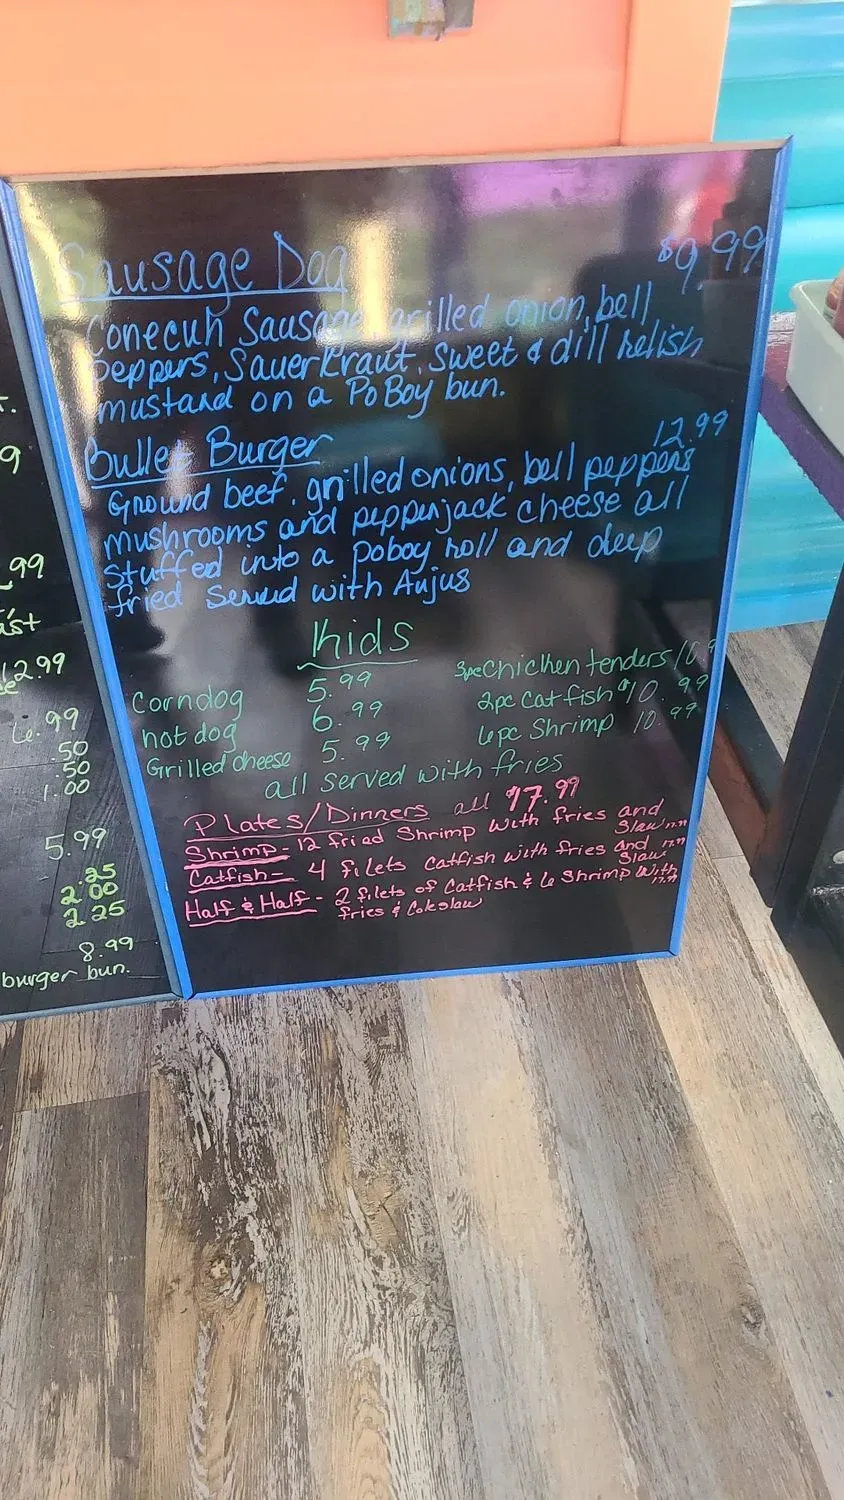 Sausage Dog $9.99
Conecuh Sausage, grilled onion, bell
peppers, Sauerkraut, Sweet & dill relish
mustard on a PoBoy bun.
Bullet Burger 12.99
Ground beef, grilled onions, bell peppers
mushrooms and pepperjack cheese all
stuffed into a poboy roll and deep
fried served with Aujus
Kids
Corndog 5.99
hot dog 6.99
Grilled cheese 5.99
3pc Chicken tenders 10.9
2pc Catfish $10.99
6pc Shrimp 10.99
all served with fries
Plates/Dinners all $17.99
Shrimp - 12 fried Shrimp with fries and
Slaw 17.99
Catfish - 4 filets Catfish with fries and 17.99
Slaw
Half & Half - 2 filets of Catfish & 6 Shrimp with
17.99
fries & Coleslaw
9
.99
12.99
6.99
.50
.50
1.00
5.99
.25
2.00
2.25
8.99
burger bun.